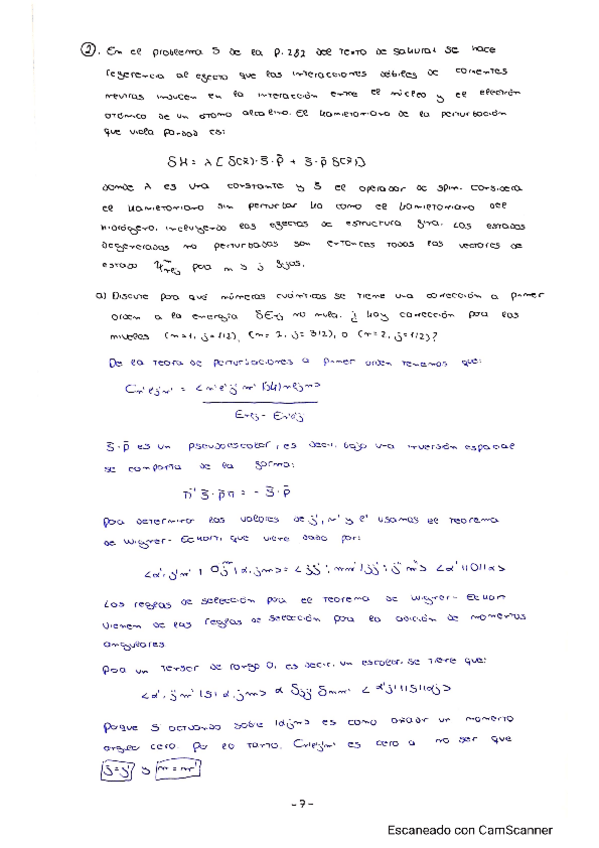 ②. En el problema 5 de la p. 282 del texto de Sakurai se hace
referencia al efecto que las interacciones débiles de corrientes
neutras inducen en la interacción entre el núcleo y el electrón
atómico de un átomo alcalino. El Hamiltoniano de la perturbación
que viola paridad es:
δH = λ [ δ(x̄)· s̄·p̄ + s̄·p̄ δ(x̄)]
donde λ es una constante y s̄ el operador de spin. Considera
el Hamiltoniano sin perturbar H₀ como el Hamiltoniano del
hidrógeno, incluyendo los efectos de estructura fina. Los estados
degenerados no perturbados son entonces todos los vectores de
estado para n y j fijos.
a) Discute para qué números cuánticos se tiene una corrección a primer
orden a la energía δEnj no nula. ¿Hay corrección para los
niveles (n=1, j=1/2), (n=2, j=3/2), o (n=2, j=1/2)?
De la teoría de perturbaciones a primer orden tenemos que:
Cn'l'j'm' = <n'l'j'm'|δH|nljm>
Enlj - En'l'j'
s̄·p̄ es un pseudoescalar, es decir, bajo una inversión espacial
se comporta de la forma:
π⁻¹ s̄·p̄ π = - s̄·p̄
Para determinar los valores de j', m' y l' usamos el teorema
de Wigner-Eckart, que viene dado por:
Las reglas de selección para el teorema de Wigner-Eckart
vienen de las reglas de selección para la adición de momentos
angulares
Para un tensor de rango 0, es decir, un escalar, se tiene que:
<α', j'm'|S|α, jm> α δjj' δmm' <α'j'||S||αj>
Porque S actuando sobre |αjm> es como añadir un momento
angular cero. Por lo tanto, Cn'l'j'm' es cero a no ser que
j=j' y m=m'
-7-
Escaneado con CamScanner